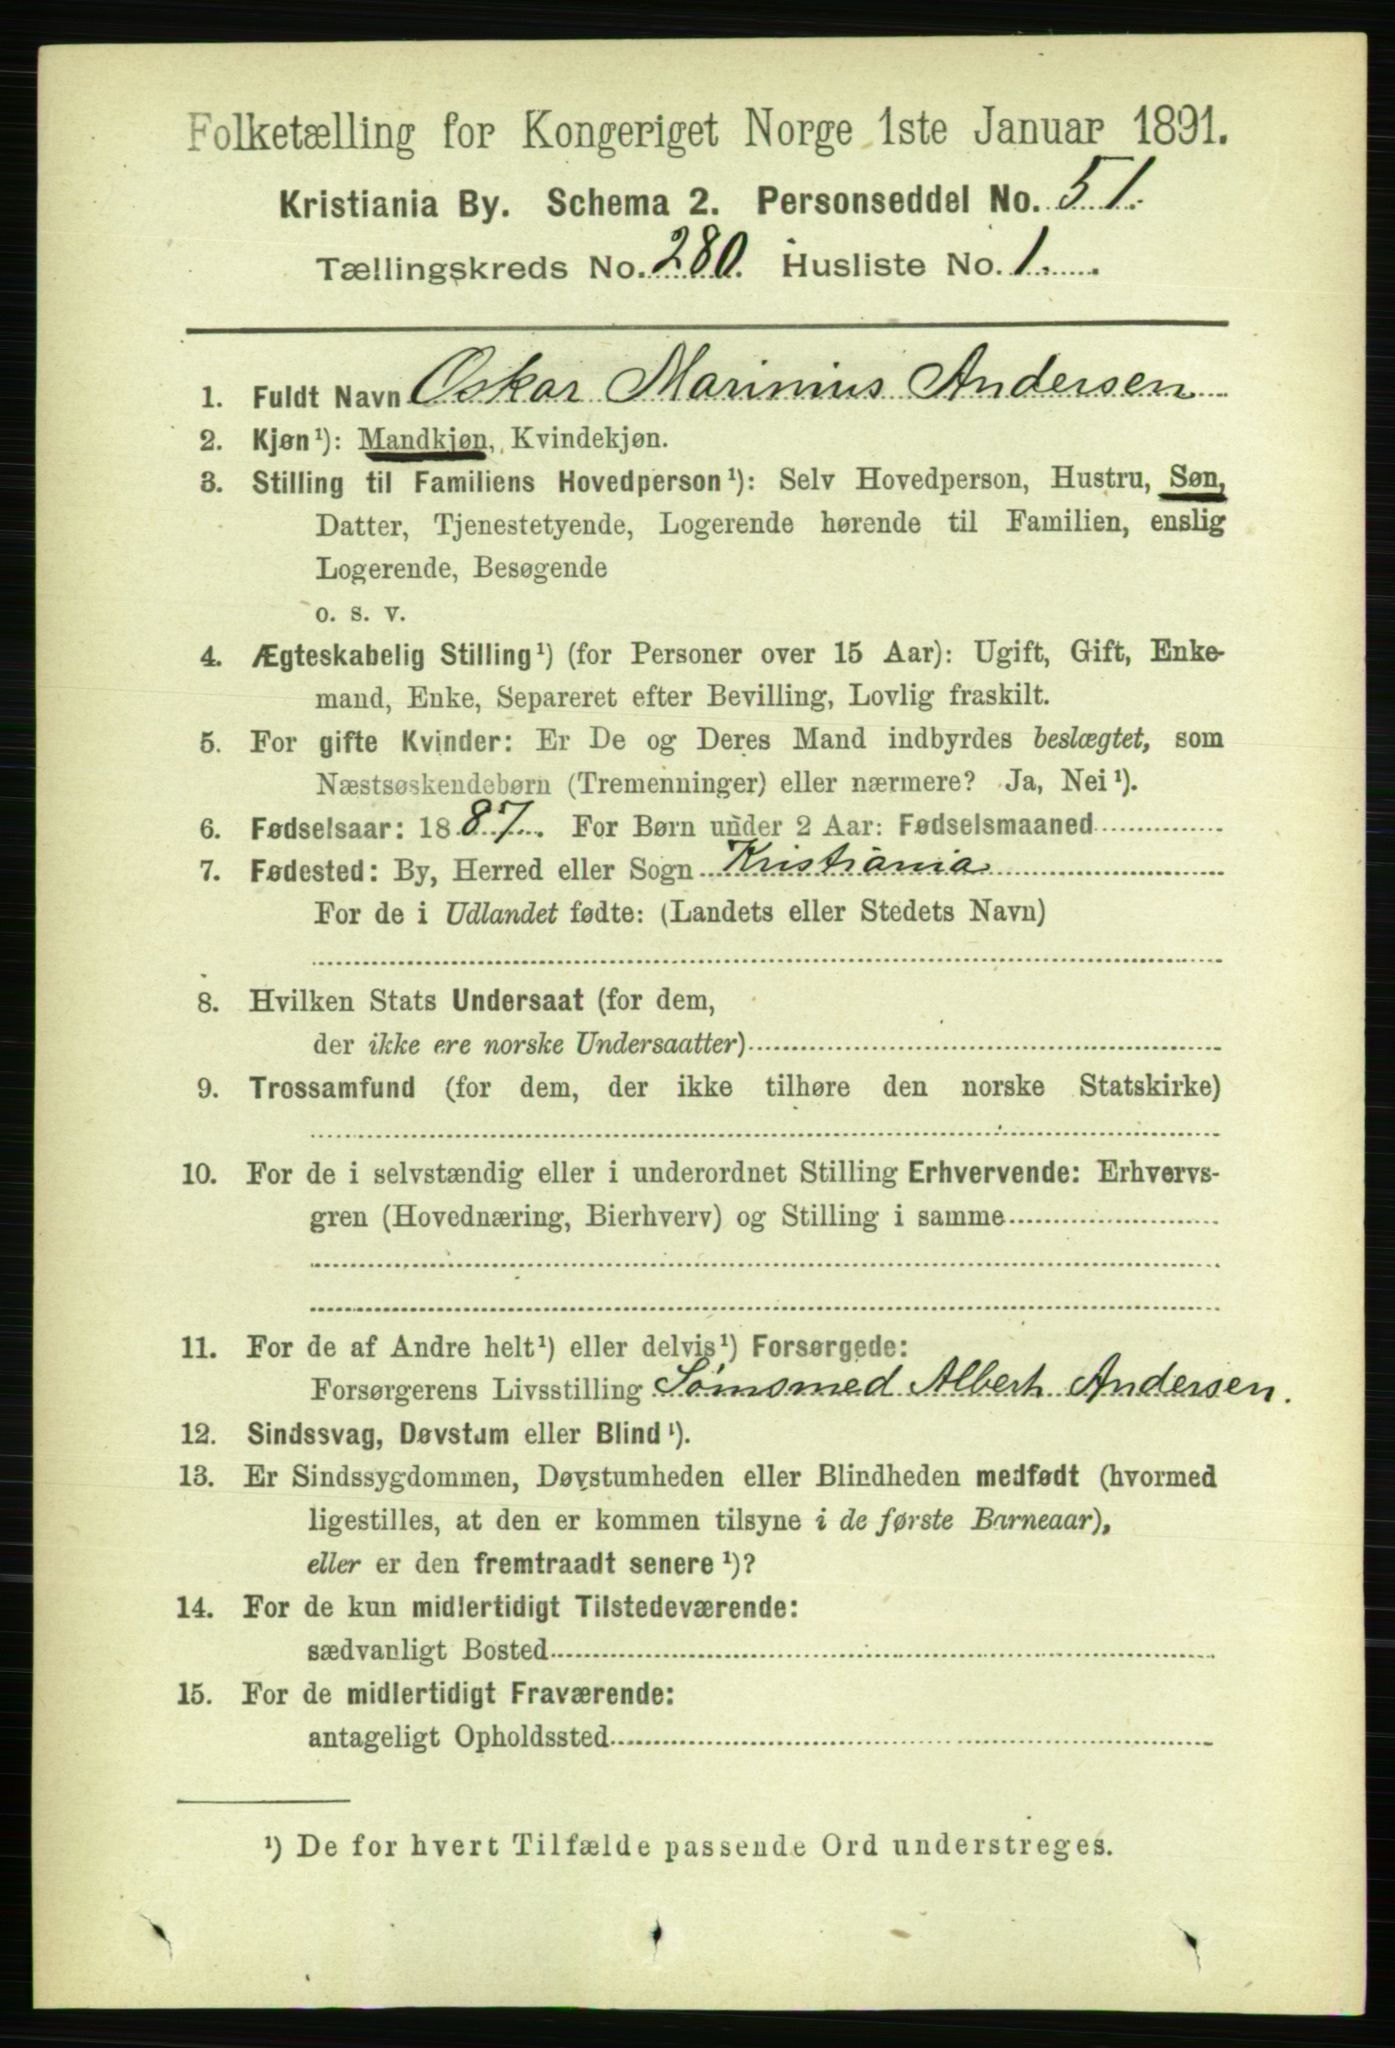 Folketælling for Kongeriget Norge 1ste Januar 1891.
Kristiania By. Schema 2. Personseddel No. 51.
Tællingskreds No. 280. Husliste No. 1.
1. Fuldt Navn Oskar Marinius Andersen
2. Kjøn¹): Mandkjøn, Kvindekjøn.
3. Stilling til Familiens Hovedperson¹): Selv Hovedperson, Hustru, Søn,
Datter, Tjenestetyende, Logerende hørende til Familien, enslig
Logerende, Besøgende
o. s. v.
4. Ægteskabelig Stilling¹) (for Personer over 15 Aar): Ugift, Gift, Enke-
mand, Enke, Separeret efter Bevilling, Lovlig fraskilt.
5. For gifte Kvinder: Er De og Deres Mand indbyrdes beslægtet, som
Næstsøskendebørn (Tremenninger) eller nærmere? Ja, Nei¹).
6. Fødselsaar: 1887. For Børn under 2 Aar: Fødselsmaaned
7. Fødested: By, Herred eller Sogn Kristiania
For de i Udlandet fødte: (Landets eller Stedets Navn)
8. Hvilken Stats Undersaat (for dem,
der ikke ere norske Undersaatter)
9. Trossamfund (for dem, der ikke tilhøre den norske Statskirke)
10. For de i selvstændig eller i underordnet Stilling Erhvervende: Erhvervs-
gren (Hovednæring, Bierhverv) og Stilling i samme
11. For de af Andre helt¹) eller delvis¹) Forsørgede:
Forsørgerens Livsstilling Sømsmed Alberh Andersen.
12. Sindssvag, Døvstum eller Blind¹).
13. Er Sindssygdommen, Døvstumheden eller Blindheden medfødt (hvormed
ligestilles, at den er kommen tilsyne i de første Barneaar),
eller er den fremtraadt senere¹)?
14. For de kun midlertidigt Tilstedeværende:
sædvanligt Bosted
15. For de midlertidigt Fraværende:
antageligt Opholdssted
¹) De for hvert Tilfælde passende Ord understreges.